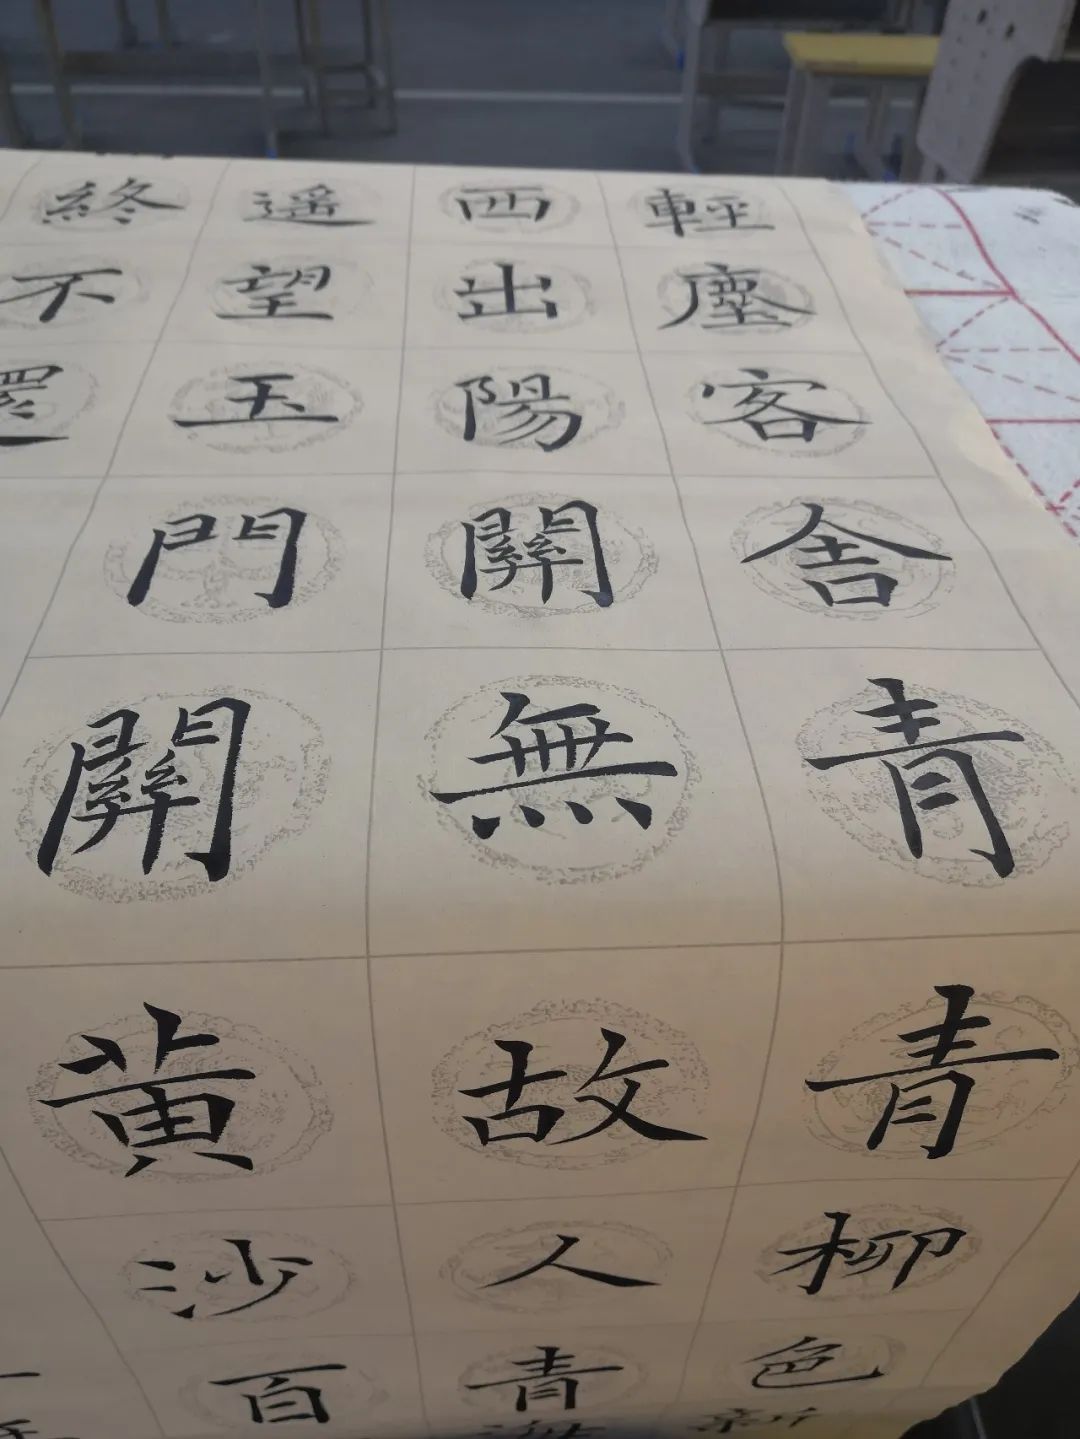 輕塵客舍青青柳色新
西出陽關無故人青海
遥望玉門關黄沙百
終不還